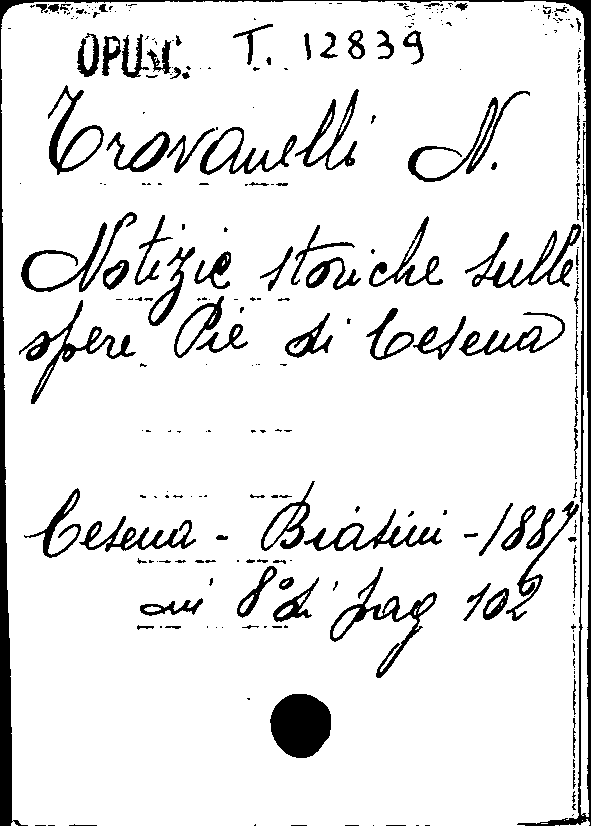 OPUSC. T. 12839
Trovanelli N.
Notizie storiche sulle
opere Pie di Cesena
Cesena - Biasini - 1887
in 8° di pag 102